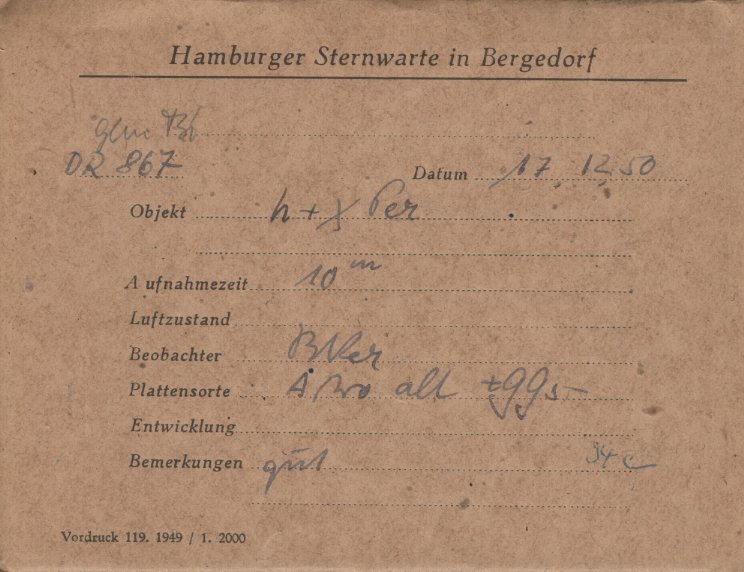 Hamburger Sternwarte in Bergedorf
DR 867
Datum 17. 12. 50
Objekt h + χ Per
Aufnahmezeit 10 m
Luftzustand
Beobachter
Plattensorte alt
Entwicklung
Bemerkungen gut
Vordruck 119. 1949 / 1. 2000